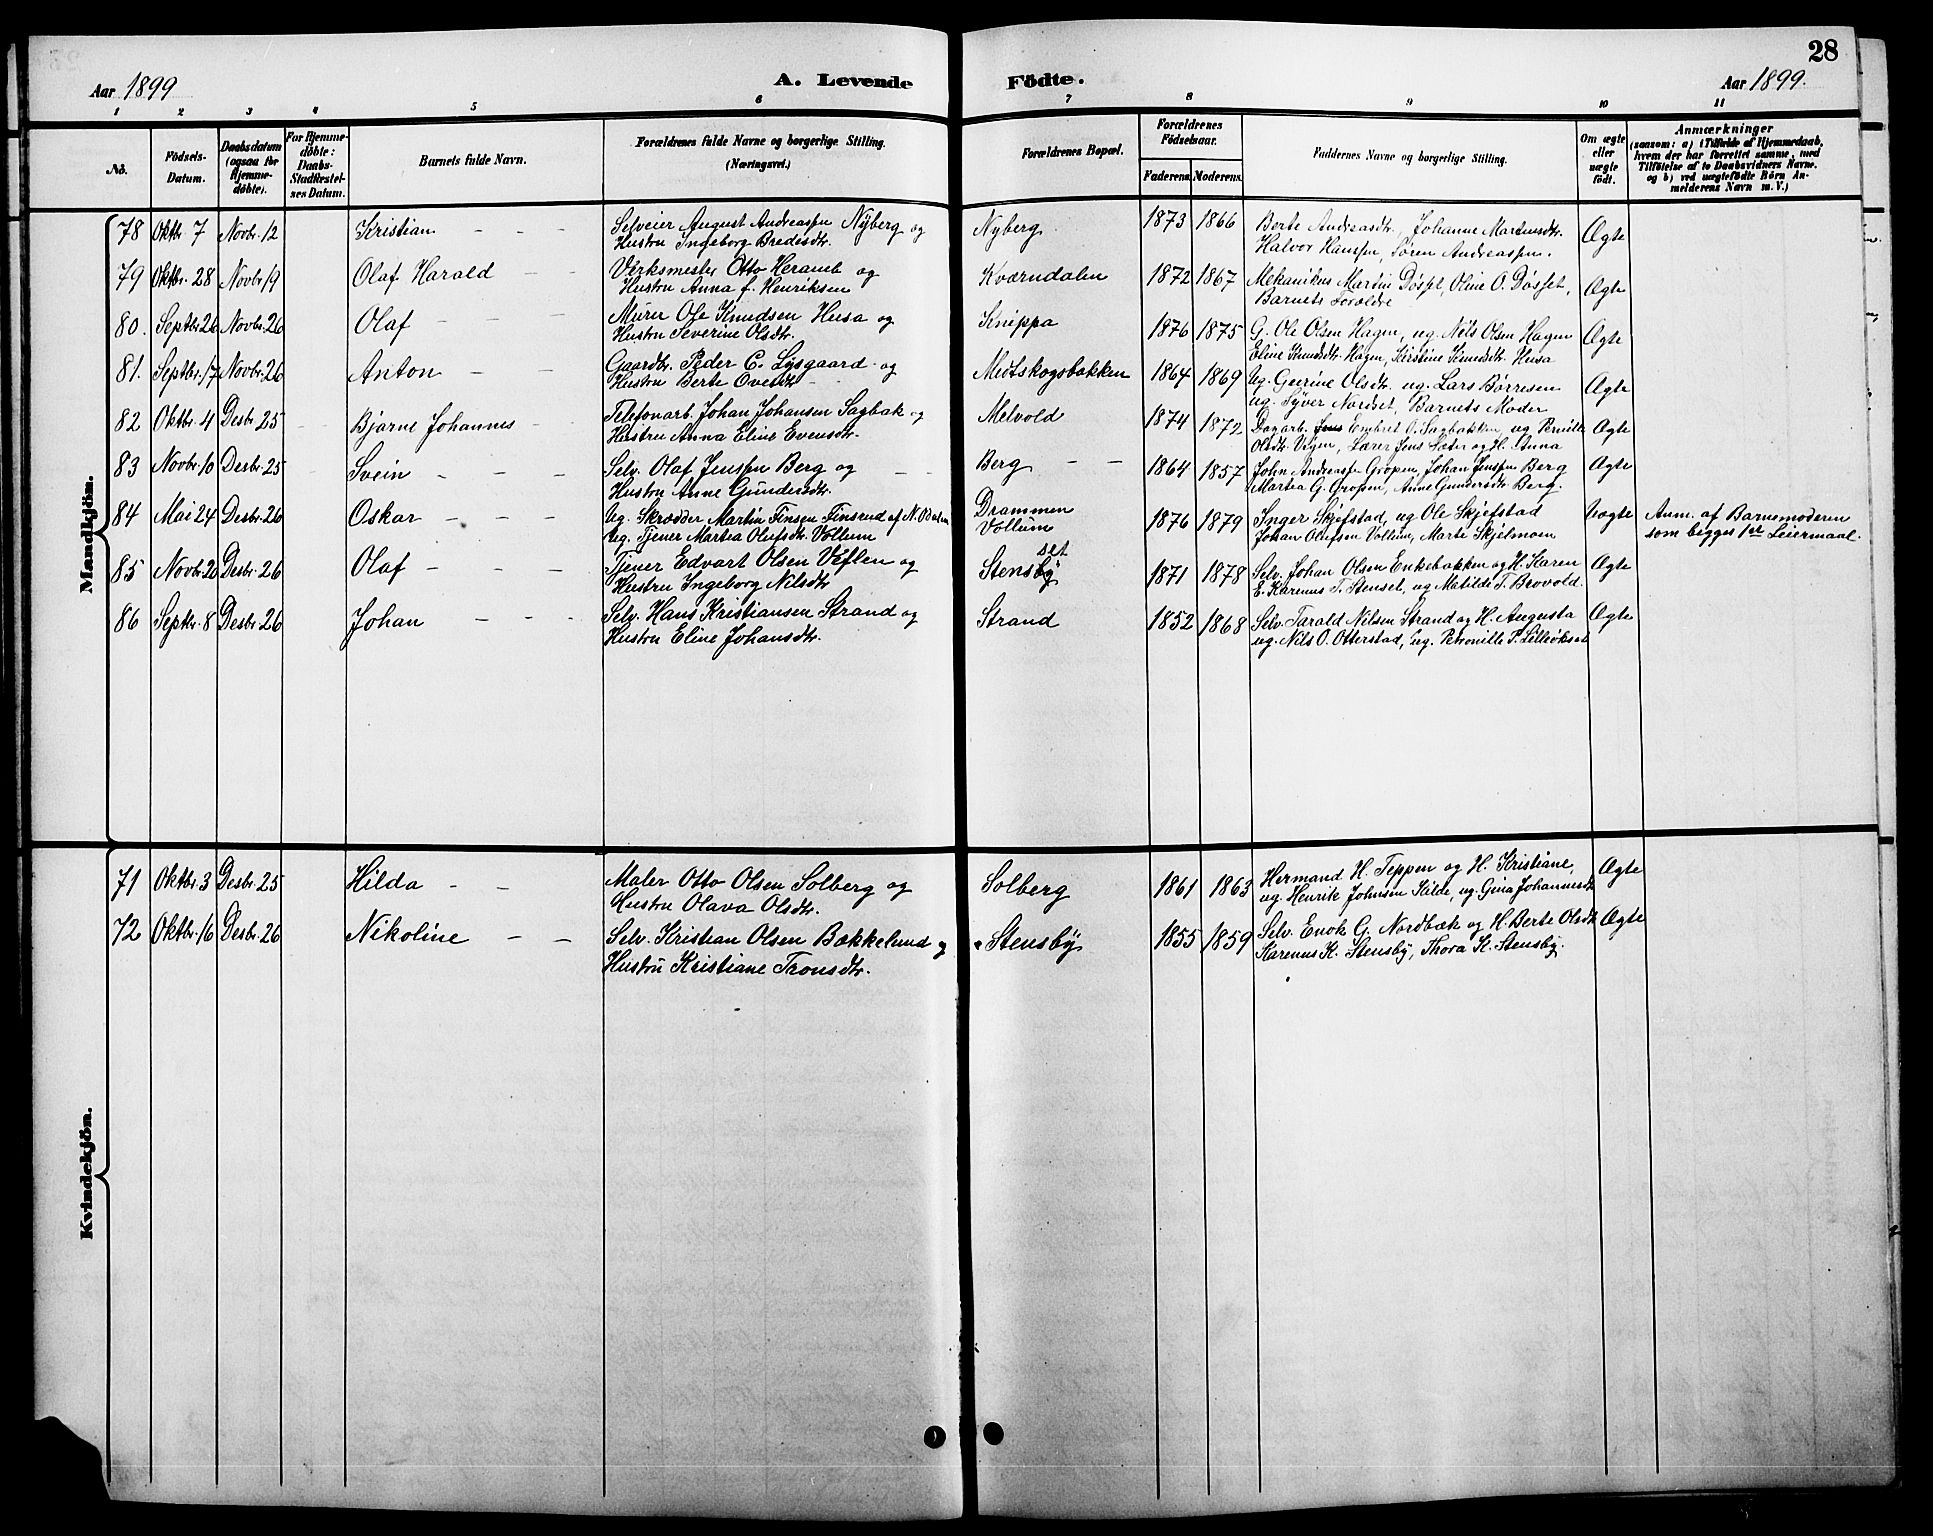 28
Aar 1899 A. Levende Födte. Aar 1899.
1 2 3 4 5 6 7 8 9 10 11
No. Födsels-Datum. Daabsdatum (ogsaa for Hjemme-döbte). For Hjemme-döbte: Daabs-Stadfæstel-ses Datum. Barnets fulde Navn. Forældrenes fulde Navne og borgerlige Stilling. (Næringsvei.) Forældrenes Bopæl. Forældrenes Födselsaar. Faderens. Moderens. Faddernes Navne og borgerlige Stilling. Om ægte eller uægte födt. Anmærkninger (saasom: a) i Tilfælde af Hjemmedaab, hvem der har forrettet samme, med Tilföielse af to Daabsvidners Navne, og b) ved uægtefödte Börn An-melderens Navn m. V.)
Mandkjön.
78 Oktbr. 7 Novbr. 12 Kristian - - - Selveier August Andreassen Nyberg og Nyberg 1873 1866 Berte Andreasdtr., Johanne Martinsdtr. Ægte
Hustru Ingeborg Bredesdtr. Halvor Hanssen, Søren Andreassen.
79 Oktbr. 28 Novbr. 19 Olaf Harald - - Verksmester Otto Heramb og Kværndalen 1872 1867 Mekanikus Martin Døsset, Oline O. Døsset, Ægte
Hustru Anna f. Henriksen Barnets Forældre
80. Septbr. 26 Novbr. 26 Olaf - - - Murer Ole Knudsen Husa og Knippa 1876 1875 G. Ole Olsen Hagen, ug. Nils Olsen Hagen Ægte
Hustru Severine Olsdtr. Eline Knudsdtr. Hagen, Kirstine Knudsdtr. Husa
81. Septbr. 17 Novbr. 26 Anton - - Gaardbr. Peder C. Lysgaard og Medtskogsbakken 1864 1869 Ug. Gurine Olsdtr. ug. Lars Børresen Ægte
Hustru Berte Ovesdtr. ug. Syver Nordset, Barnets Moder
82 Oktbr. 4 Desbr. 25 Bjarne Johannes - Telefonarb. Johan Johansen Sagbak og Melvold 1874 1872 Dagarb. Embret O. Sagbakken, ug Pernille Ægte
Hustru Anna Eline Evensdtr. Olsdtr. Vigen, Lærer Jens Sæter og H. Anna
83 Novbr. 10 Desbr. 25 Svein - - - Selv. Olaf Jenssen Berg og Berg - - 1864 1857 John Andreassen Gropen, Johan Jenssen Berg Ægte
Hustru Anne Gundersdtr. Martea G. Gropen, Anne Gundersdtr. Berg.
84 Mai 24 Desbr. 26 Oskar - - - Ug. Skrædder Martin Finsen Finsrud af N. Odalen Drammen 1876 1879 Inger Skjefstad, ug Ole Skjefstad Uægte Anm. af Barnemoderen
Ug. Tjener Martea Olufsdtr. Vollum Vollum Johan Olufsen Vollum, Marte Skjelmoen som begges 1ste Leiermaal.
85 Novbr. 20 Desbr. 26 Olaf - - - Tjener Edvart Olsen Veflen og Stensbyset 1871 1878 Selv. Johan Olsen Enkebakken og H. Karen Ægte
Hustru Ingeborg Nilsdtr. E. Karenus T. Stenset, ug Matilde T. Brovold.
86 Septbr. 8 Desbr. 26 Johan - - - Selv. Hans Kristiansen Strand og Strand 1852 1868 Selv. Tarald Nilsen Strand og H. Augusta Ægte
Hustru Eline Johansdtr. ug. Nils O. Otterstad, ug. Petronille P. Lilleøkset
Kvindekjön.
71 Oktbr. 3 Desbr. 25 Hilda - - Maler Otto Olsen Solberg og Solberg 1861 1863 Hermand H. Teppen og H. Kristiane, Ægte
Hustru Olava Olsdtr. ug. Henrik Johnsen Kilde, ug. Gina Johannesdtr.
72 Oktbr. 16 Desbr. 26 Nikoline - - Selv. Kristian Olsen Bækkelund og Stensby 1855 1859 Selv. Enok G. Nordbæk og H. Berte Olsdtr. Ægte
Hustru Kristiane Tronsdtr. Karenus K. Stensby, Thora K. Stensby.